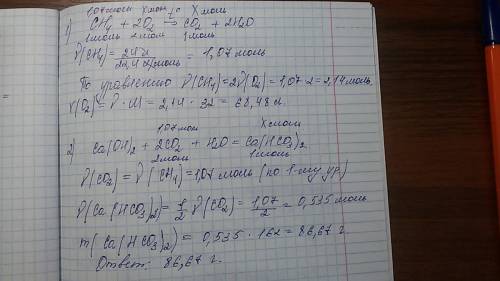 1,07 моль X моль X моль
1) CH₄ + 2O₂ → CO₂ + 2H₂O
1 моль 2 моль 1 моль
ν(CH₄) = 24 л / 22,4 л/моль = 1,07 моль
По уравнению ν(CH₄) = 2ν(O₂) = 1,07 · 2 = 2,14 моль
V(O₂) = ν · M = 2,14 · 32 = 68,48 л.
1,07 моль X моль
2) Ca(OH)₂ + 2CO₂ + H₂O = Ca(HCO₃)₂
2 моль 1 моль
ν(CO₂) = ν(CH₄) = 1,07 моль (по 1-му ур)
ν(Ca(HCO₃)₂) = 1/2 ν(CO₂) = 1,07/2 = 0,535 моль
m(Ca(HCO₃)₂) = 0,535 · 162 = 86,67 г.
Ответ: 86,67 г.